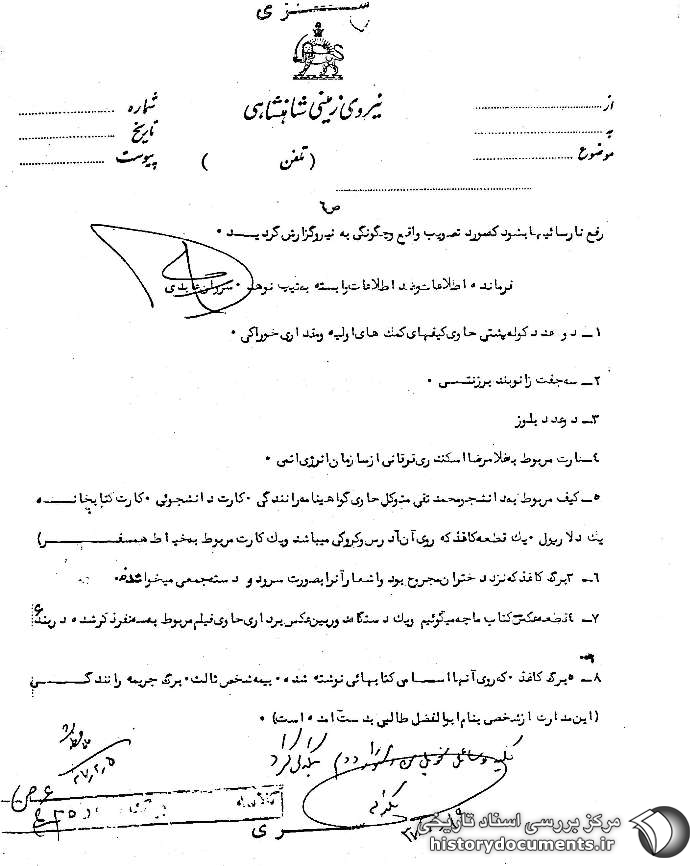 ســـــری
نیروی زمینی شاهنشاهی
از
به
موضوع
شماره
تاریخ
پیوست
( تلفن )
ص٦
رفع نارسائیها بشود که مورد تصویب واقع و چگونگی به نیرو گزارش گردیـــــد ۰
فرمانده اطلاعات و ضد اطلاعات وابسته به تیپ نوهد ۰ سروان عابدی
۱ـ دو عدد کوله پشتی حاوی کیفهای کمک های اولیه و مقداری خوراکی ۰
۲ـ سه جفت زانو بند برزنتـــی ۰
۳ـ دو عدد بلوز
٤ـ کارت مربوط به غلامرضا اسکندری نوقانی از سازمان انرژی اتمی ۰
۵ـ کیف مربوط به دانشجو محمد تقی متوکل حاوی گواهینامه رانندگی ۰ کارت دانشجوئی ۰ کارت کتابخانـــه
یک دلاریول ۰ یک قطعه کاغذ که روی آن آدرس و کروکی میباشد و یک کارت مربوط به خیاط همسفـــــر)
٦ـ ۲برگ کاغذ که نزد دختران مجروح بود و اشعار آنرا بصورت سرود و دسته جمعی میخواندند۰
۷ـ ٤قطعه عکس کتاب ما چه میگوئیم و یک دستگاه دوربین عکس برداری حاوی فیلم مربوط به سه نفر ذکر شده در بند ۶
۸ـ ٥برگ کاغذ ۰ که روی آنها اسامی کتابهائی نوشته شده ۰ بیمه شخص ثالث ۰ برگ جریمه رانندگـــی
(این مدارک از شخصی بنام ابوالفضل طالبی بدست آمده است) ۰
کلیه وسائل تحویل
۳۷٫۲٫۵
ســـری
مرکز بررسی اسناد تاریخی
historydocuments.ir